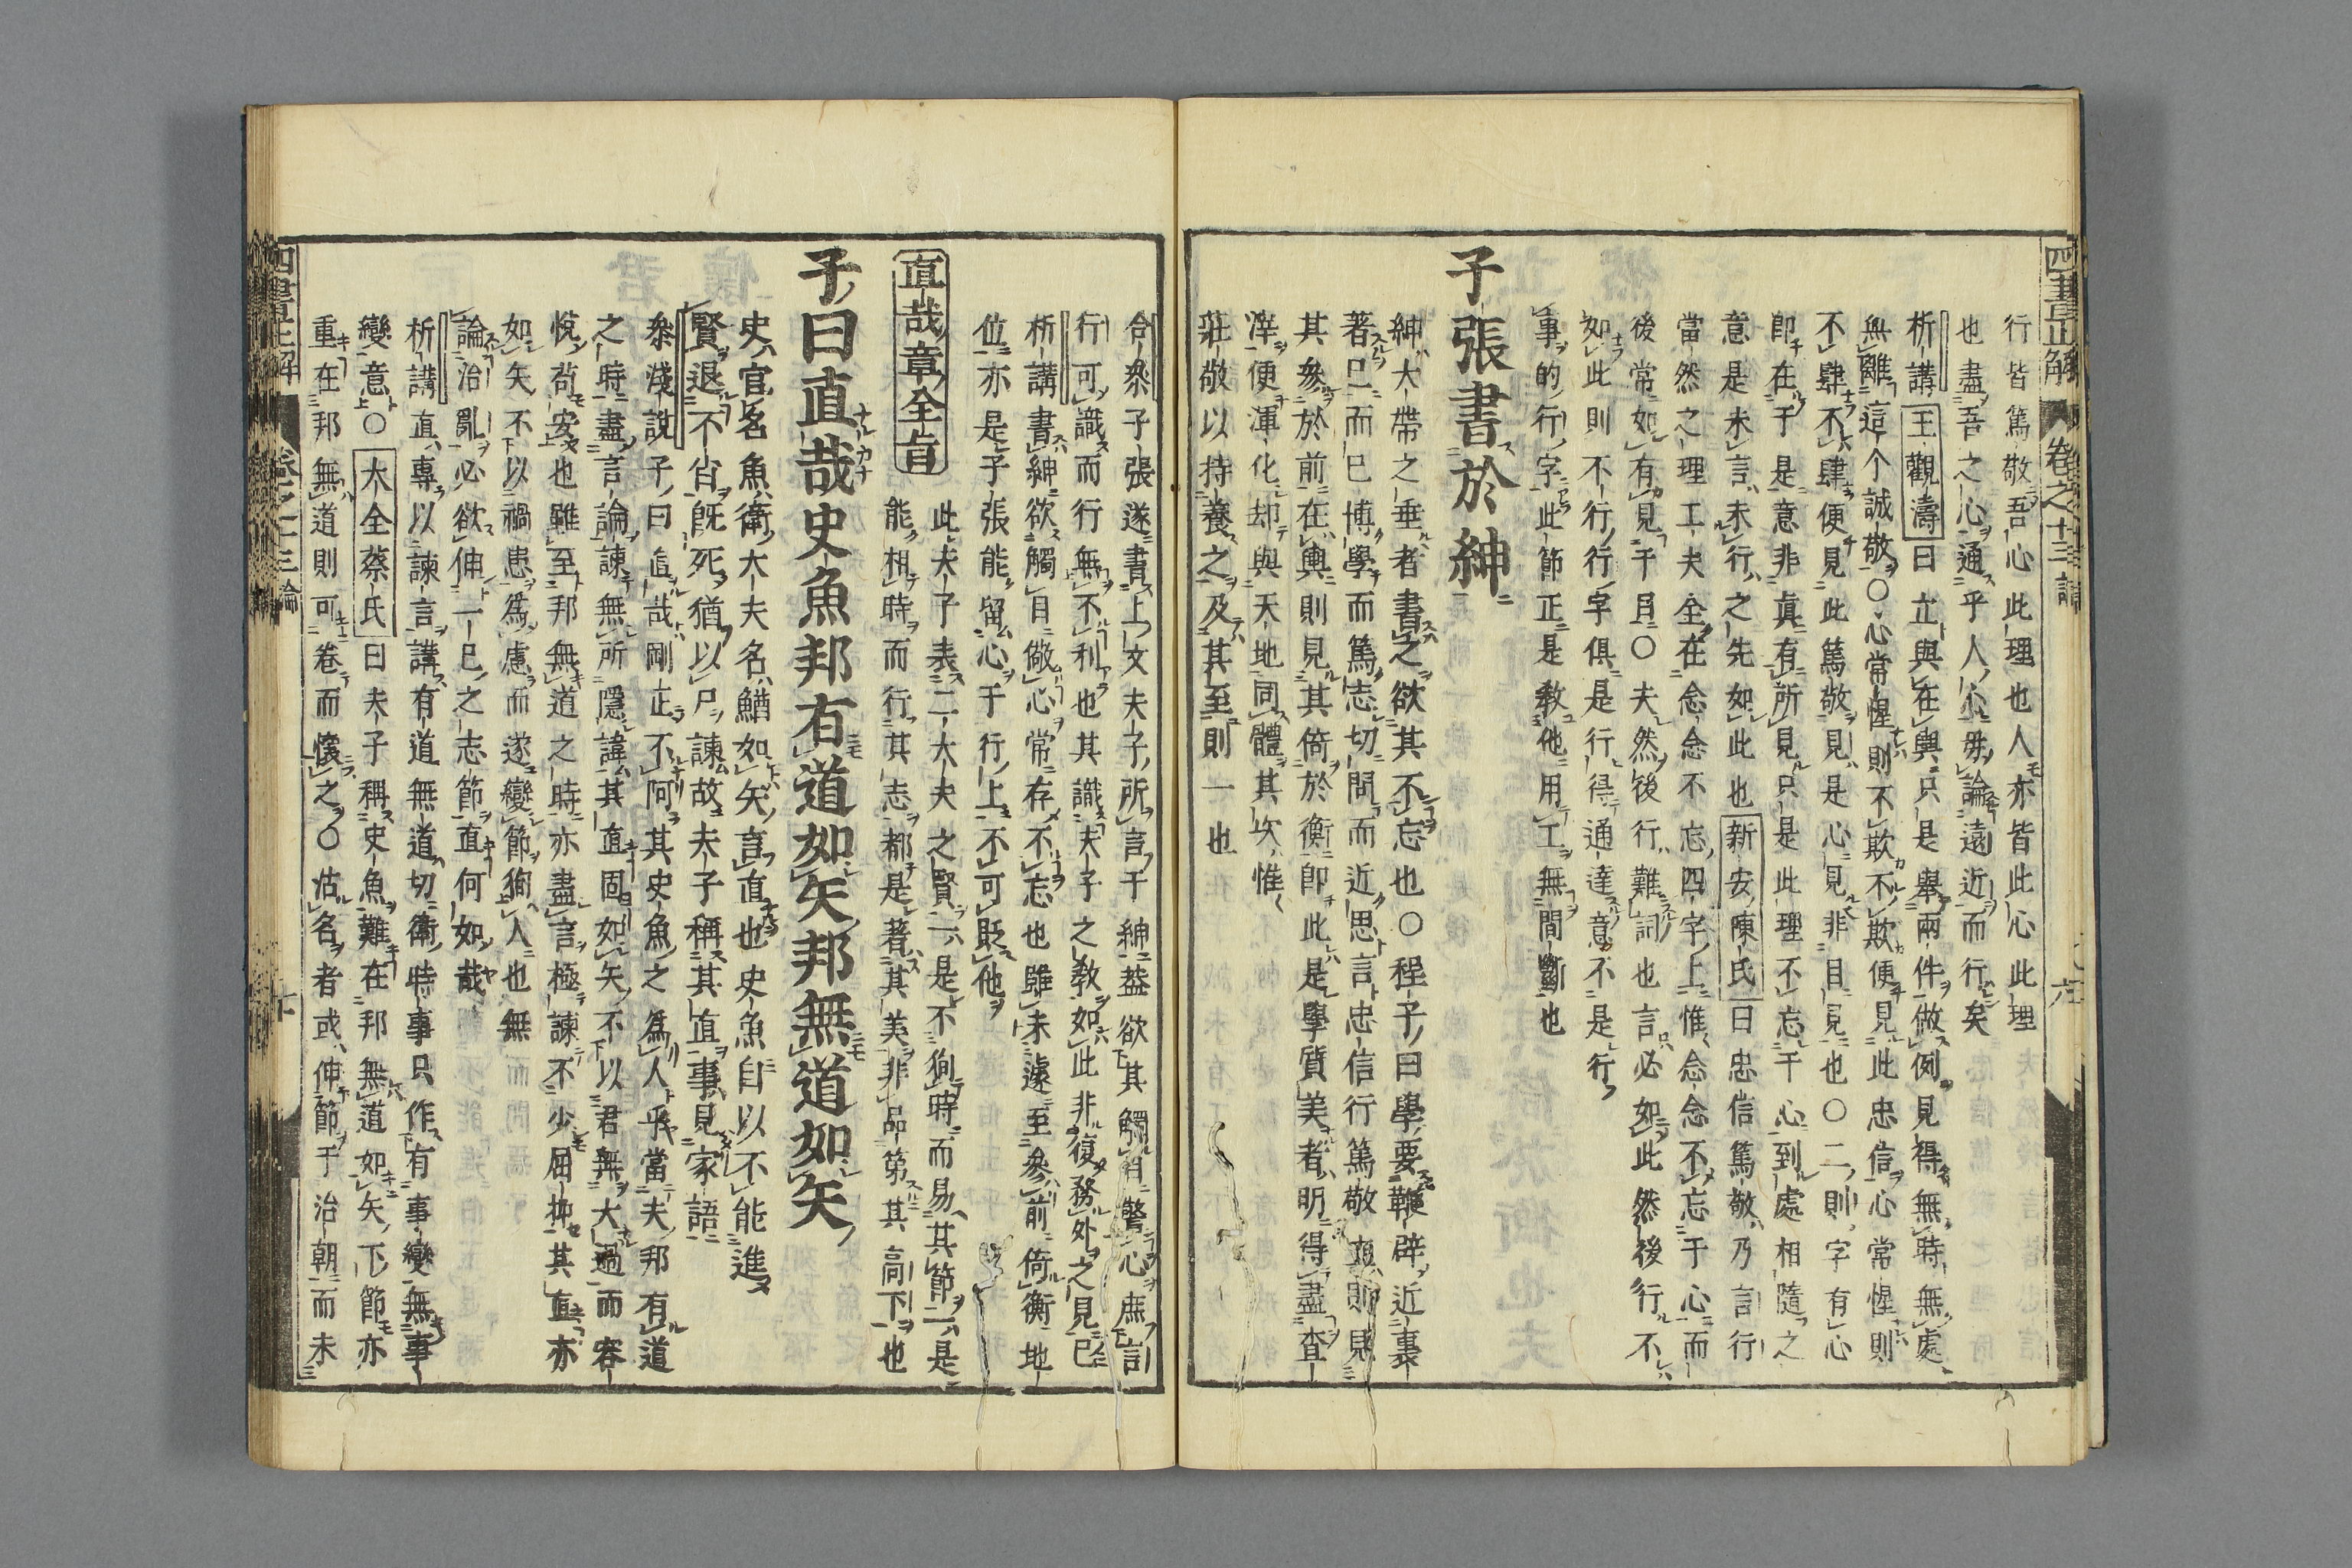 行皆篤敬吾心此理也人亦皆此心此理
也盡吾之心通乎人心毋論遠近而行矣
析講王觀濤曰立與在輿只是舉兩件做例見得無時無處
無離這个誠敬〇心常惺則不欺不欺便見此忠信心常惺則
不肆不肆便見此篤敬見是心見非目見也〇二則字有心
卽在于是意非眞有所見只是此理不忘于心到處相隨之
意是未言未行之先如此也新安陳氏曰忠信篤敬乃言行
當然之理工夫全在念念不忘四字上惟念念不忘于心而
後常如有見于目〇夫然後行難詞也言必如此然後行不
如此則不行行字俱是行得通達意不是行
事的行字此節正是教他用工無間斷也
子張書於紳
紳大帶之垂者書之欲其不忘也〇程子曰學要鞭辟近裏
著己而已博學而篤志切問而近思言忠信行篤敬立則見
其參於前在輿則見其倚於衡卽此是學質美者明得盡査
滓便渾化却與天地同體其次惟
莊敬以持養之及其至則一也
合參子張遂書上文夫子所言于紳葢欲其觸目警心庶言
行可識而行無不利也其識夫子之教如此非復務外之見已
析講書紳欲觸目儆心常存不忘也雖未遽至參前倚衡地
位亦是子張能留心于行上不可貶他
直哉章全旨
此夫子表二大夫之賢一是不狥時而易其節一是
能相時而行其志都是著其美非品第其高下也
子曰直哉史魚邦有道如矢邦無道如矢
史官名魚衛大夫名鰌如矢言直也史魚自以不能進
賢退不肖旣死猶以尸諫故夫子稱其直事見家語
參淺說子曰直哉剛正不阿其史魚之為人乎當夫邦有道
之時盡言論諫無所隱諱其直固如矢不以君無大過而容
悅苟安也雖至邦無道之時亦盡言極諫不少屈抑其直亦
如矢不以禍患為慮而遂變節狥人也無
論治亂必欲伸一己之志節直何如哉
析講直專以諫言講有道無道切衛時事只作有事變無事
變意〇大全蔡氏曰夫子稱史魚難在邦無道如矢下節亦
重在邦無道則可卷而懷之〇沽名者或伸節于治朝而未